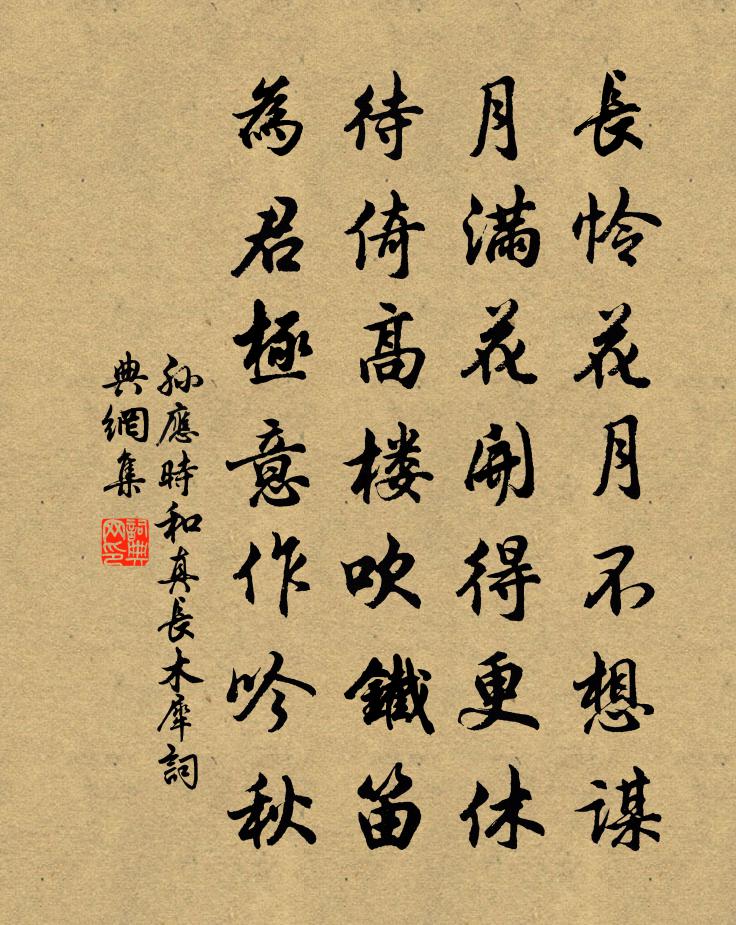 長怜花月不想謀
月滿花開得更休
待倚高楼吹鐵笛
為君極意作吟秋
孫應時和真長木犀詞
典網集
詞典网印